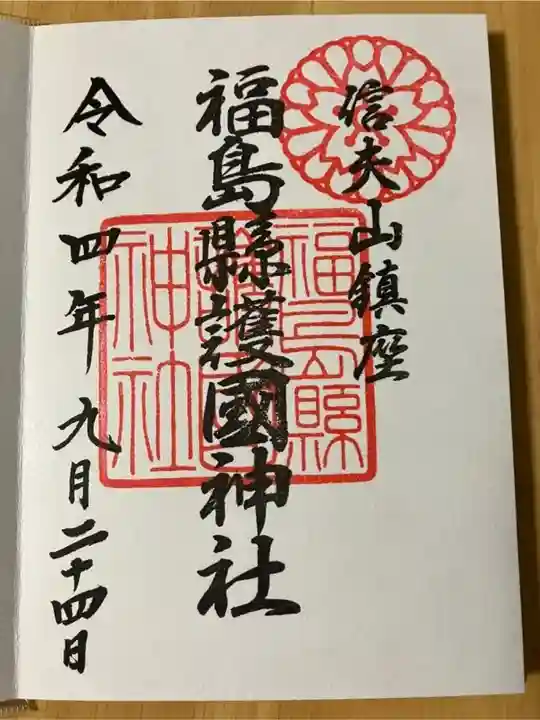 信夫山鎮座
福島縣護國神社
福島縣護國神社
令和四年九月二十四日